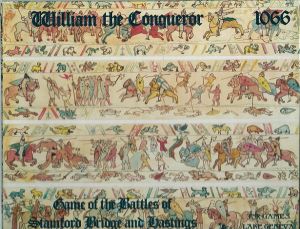 William the Conqueror 1066
Game of the Battles of
Stamford Bridge and Hastings
TSR GAMES
LAKE GENEVA